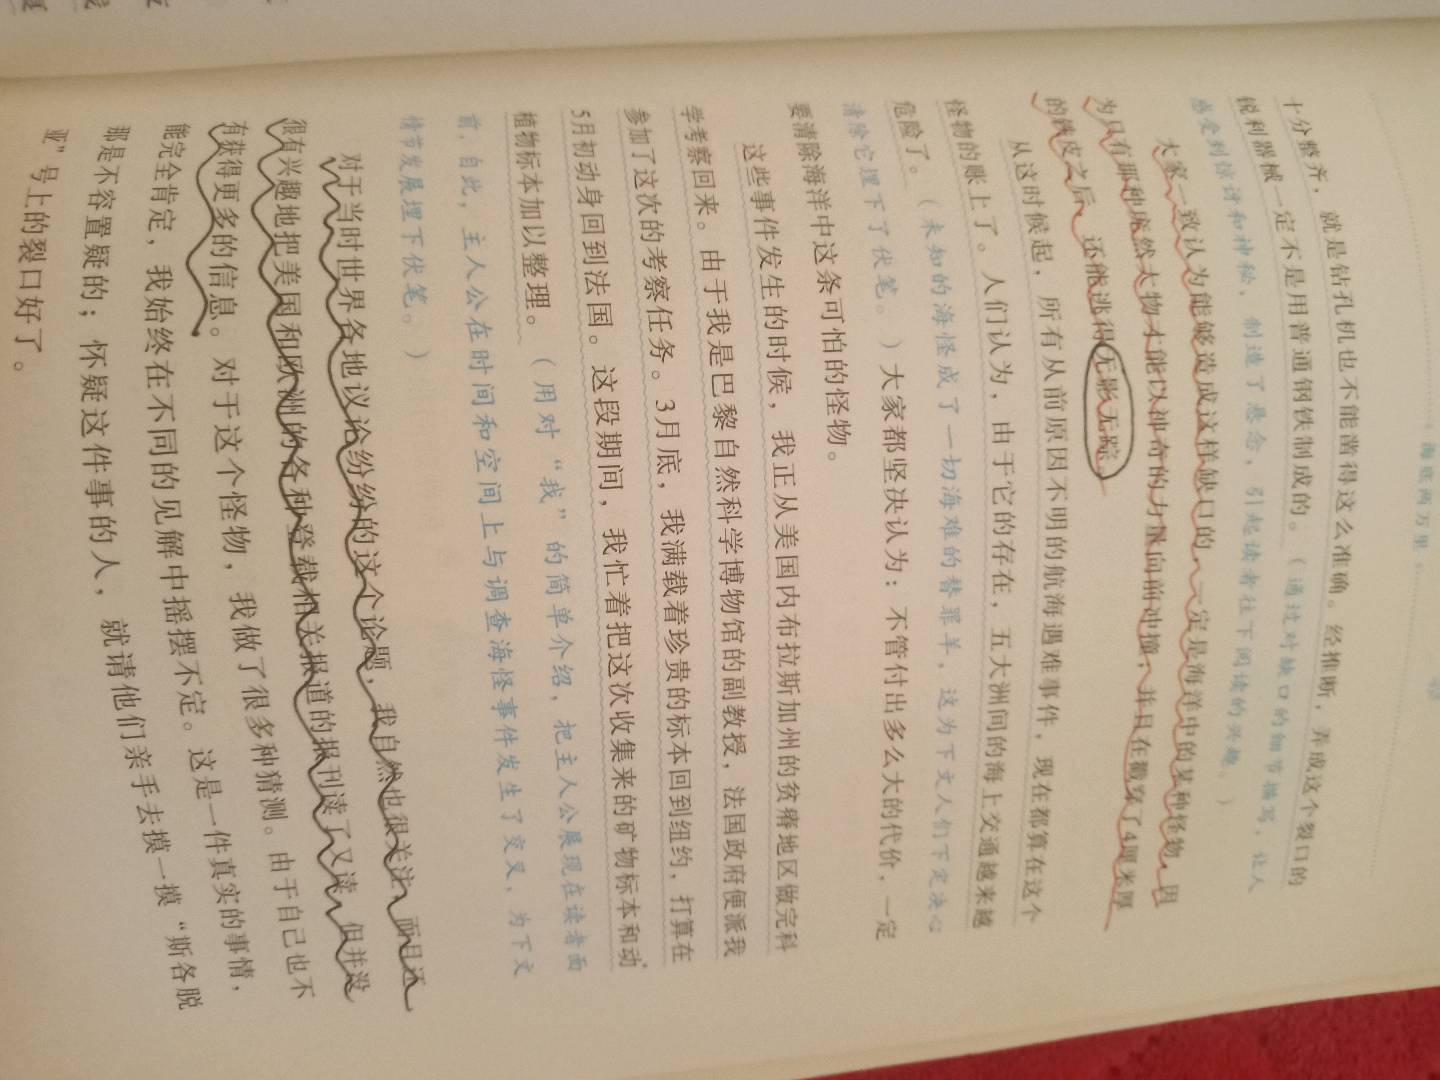 海底两万里
十分整齐，就是钻孔机也不能凿得这么准确。经推断，弄成这个裂口的
锐利器械一定不是用普通钢铁制成的。（通过对缺口的细节描写，让人
感受到惊讶和神秘，制造了悬念，引起读者往下阅读的兴趣。）
大家一致认为能够造成这样缺口的，一定是海洋中的某种怪物，因
为只有那种庞然大物才能以神奇的力量向前冲撞，并且在戳穿了4厘米厚
的铁皮之后，还能逃得无影无踪。
从这时候起，所有从前原因不明的航海遇难事件，现在都算在这个
怪物的账上了。人们认为，由于它的存在，五大洲间的海上交通越来越
危险了。（未知的海怪成了一切海难的替罪羊，这为下文人们下定决心
清除它埋下了伏笔。）大家都坚决认为：不管付出多么大的代价，一定
要清除海洋中这条可怕的怪物。
这些事件发生的时候，我正从美国内布拉斯加州的贫瘠地区做完科
学考察回来。由于我是巴黎自然科学博物馆的副教授，法国政府便派我
参加了这次的考察任务。3月底，我满载着珍贵的标本回到纽约，打算在
5月初动身回到法国。这段期间，我忙着把这次收集来的矿物标本和动
植物标本加以整理。（用对“我”的简单介绍，把主人公展现在读者面
前，自此，主人公在时间和空间上与调查海怪事件发生了交叉，为下文
情节发展埋下伏笔。）
对于当时世界各地议论纷纷的这个论题，我自然也很关注，而且还
很有兴趣地把美国和欧洲的各种登载相关报道的报刊读了又读，但并没
有获得更多的信息。对于这个怪物，我做了很多种猜测。由于自己也不
能完全肯定，我始终在不同的见解中摇摆不定。这是一件真实的事情，
那是不容置疑的；怀疑这件事的人，就请他们亲手去摸一摸“斯各脱
亚”号上的裂口好了。